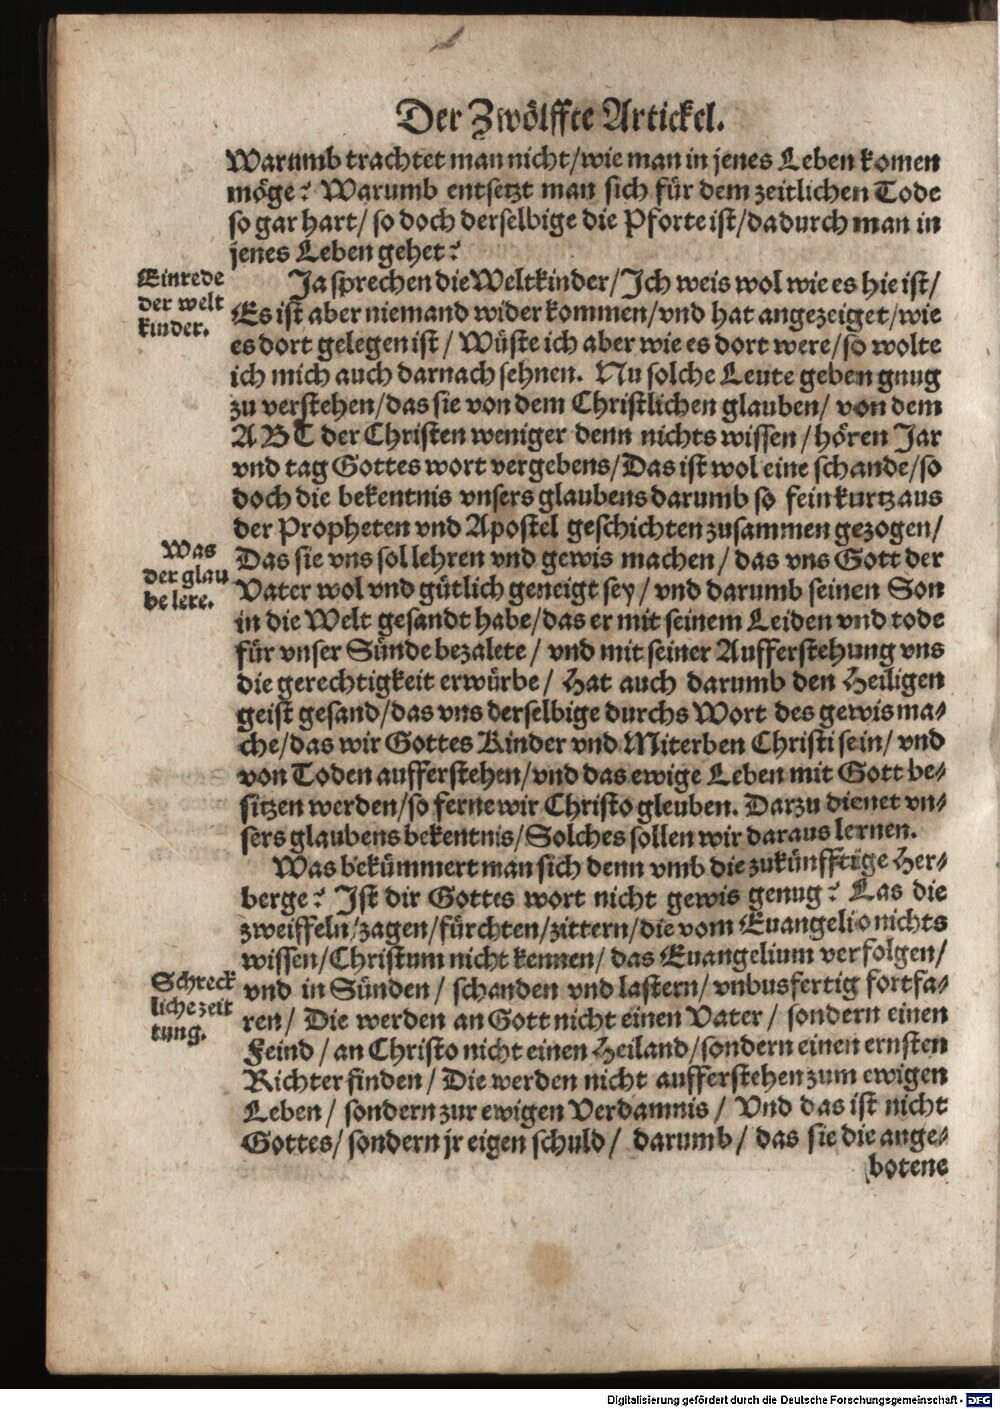 Der Zwölffte Artickel.
Warumb trachtet man nicht/wie man in jenes Leben komen
möge? Warumb entsetzt man sich für dem zeitlichen Tode
so gar hart/ so doch derselbige die Pforte ist/dadurch man in
jenes Leben gehet?
Einrede
der welt
kinder.
Ja sprechen die Weltkinder/Ich weis wol wie es hie ist/
Es ist aber niemand wider kommen/vnd hat angezeiget/wie
es dort gelegen ist/ Wüste ich aber wie es dort were/so wolte
ich mich auch darnach sehnen. Nu solche Leute geben gnug
zu verstehen/das sie von dem Christlichen glauben/ von dem
ABC der Christen weniger denn nichts wissen/hören Jar
vnd tag Gottes wort vergebens/Das ist wol eine schande/so
doch die bekentnis vnsers glaubens darumb so fein kurtz aus
der Propheten vnd Apostel geschichten zusammen gezogen/
Was
der glau
be lere.
Das sie vns sol lehren vnd gewis machen/ das vns Gott der
Vater wol vnd gütlich geneigt sey/ vnd darumb seinen Son
in die Welt gesandt habe/das er mit seinem Leiden vnd tode
für vnser Sünde bezalete/ vnd mit seiner Aufferstehung vns
die gerechtigkeit erwürbe/ Hat auch darumb den Heiligen
geist gesand/das vns derselbige durchs Wort des gewis ma⸗
che/das wir Gottes Kinder vnd Miterben Christi sein/ vnd
von Toden aufferstehen/vnd das ewige Leben mit Gott be⸗
sitzen werden/so ferne wir Christo gleuben. Darzu dienet vn⸗
sers glaubens bekentnis/Solches sollen wir daraus lernen.
Was bekümmert man sich denn vmb die zukünfftige Her⸗
berge? Ist dir Gottes wort nicht gewis genug? Las die
zweiffeln/zagen/fürchten/zittern/die vom Euangelio nichts
wissen/Christum nicht kennen/ das Euangelium verfolgen/
Schreck
liche zeit
tung.
vnd in Sünden/ schanden vnd lastern/ vnbusfertig fortfa⸗
ren/ Die werden an Gott nicht einen Vater/ sondern einen
Feind/ an Christo nicht einen Heiland/sondern einen ernsten
Richter finden/ Die werden nicht aufferstehen zum ewigen
Leben/ sondern zur ewigen Verdamnis/ Vnd das ist nicht
Gottes/ sondern jr eigen schuld/ darumb/ das sie die ange⸗
botene
Digitalisierung gefördert durch die Deutsche Forschungsgemeinschaft - DFG